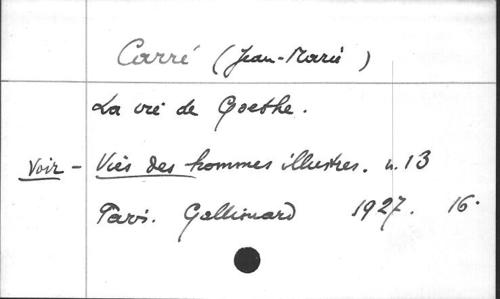 Carré (Jean-Marie)
La vie de Goethe.
Voir - Vies des hommes illustres. n. 13
Paris. Gallimard 1927. 16.